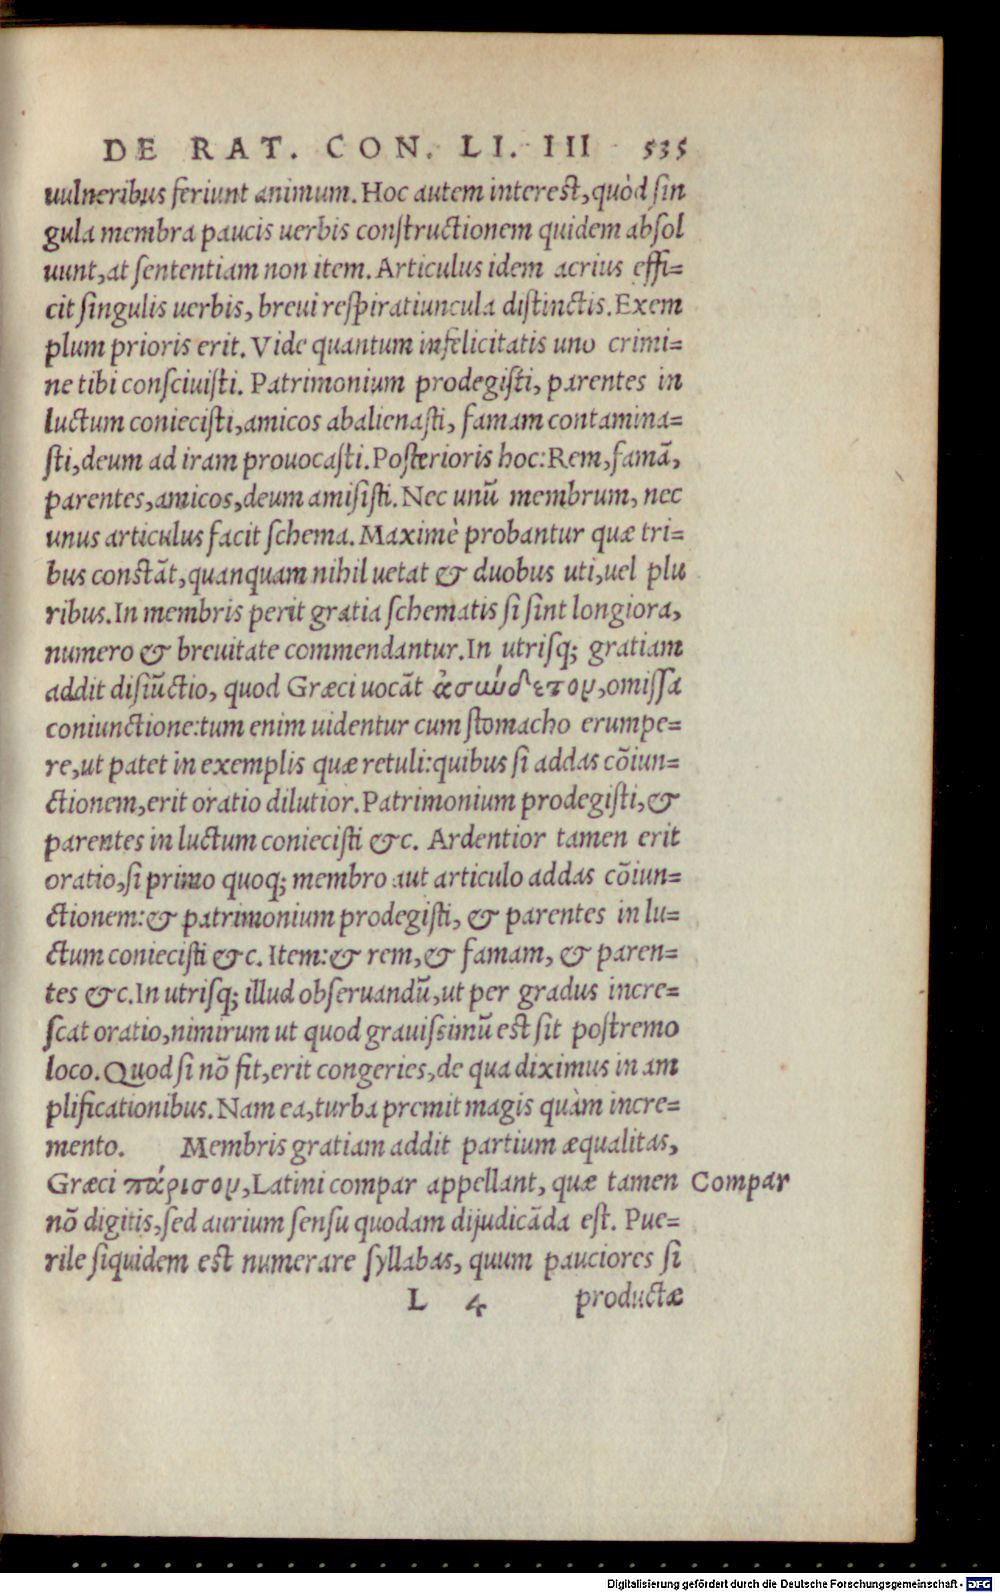 DE RAT. CON. LI. III 535
uulneribus feriunt animum. Hoc autem interest, quòd sin
gula membra paucis uerbis constructionem quidem absol
uunt, at sententiam non item. Articulus idem acrius effi=
cit singulis uerbis, breui respiratiuncula distinctis. Exem
plum prioris erit. Vide quantum infelicitatis uno crimi=
ne tibi consciuisti. Patrimonium prodegisti, parentes in
luctum coniecisti, amicos abalienasti, famam contamina=
sti, deum ad iram prouocasti. Posterioris hoc: Rem, famã,
parentes, amicos, deum amisisti. Nec unũ membrum, nec
unus articulus facit schema. Maximè probantur quæ tri=
bus constãt, quanquam nihil uetat & duobus uti, uel plu
ribus. In membris perit gratia schematis si sint longiora,
numero & breuitate commendantur. In utrisq; gratiam
addit disiũctio, quod Græci uocãt ἀσύνδετον, omissa
coniunctione: tum enim uidentur cum stomacho erumpe=
re, ut patet in exemplis quæ retuli: quibus si addas cõiun=
ctionem, erit oratio dilutior. Patrimonium prodegisti, &
parentes in luctum coniecisti &c. Ardentior tamen erit
oratio, si primo quoq; membro aut articulo addas cõiun=
ctionem: & patrimonium prodegisti, & parentes in lu=
ctum coniecisti &c. Item: & rem, & famam, & paren=
tes &c. In utrisq; illud obseruandũ, ut per gradus incre=
scat oratio, nimirum ut quod grauissimũ est sit postremo
loco. Quod si nõ fit, erit congeries, de qua diximus in am
plificationibus. Nam ea, turba premit magis quàm incre=
mento. Membris gratiam addit partium æqualitas,
Græci πάρισον, Latini compar appellant, quæ tamen Compar
nõ digitis, sed aurium sensu quodam dijudicãda est. Pue=
rile siquidem est numerare syllabas, quum pauciores si
L 4 productæ
Digitalisierung gefördert durch die Deutsche Forschungsgemeinschaft - DFG